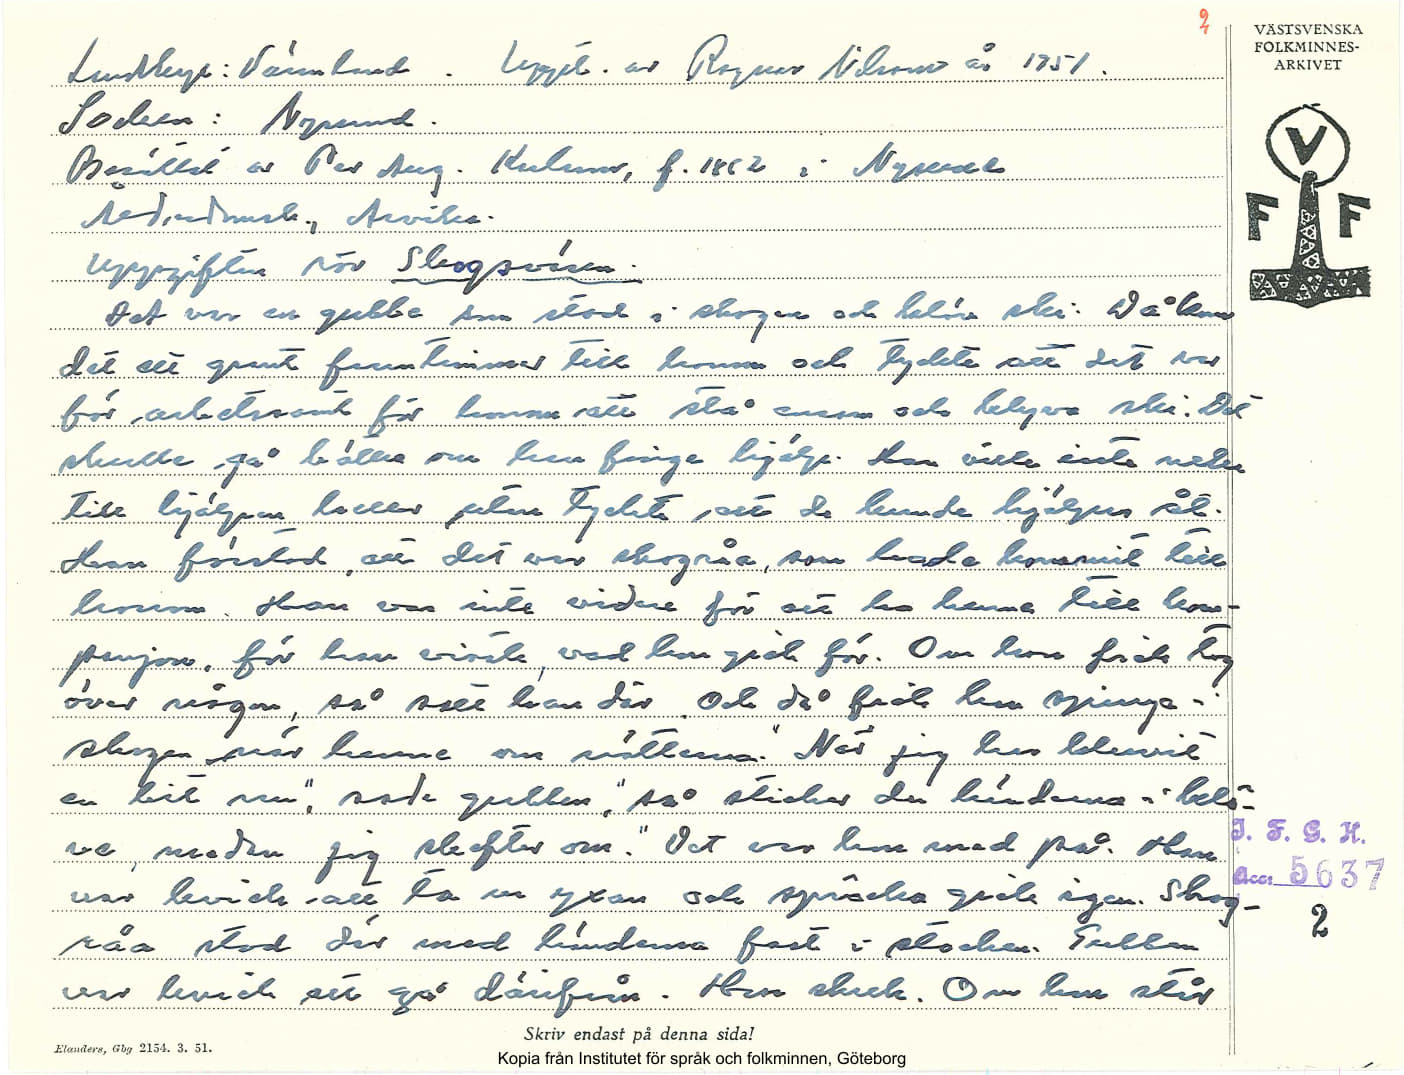 2
VÄSTSVENSKA
FOLKMINNES-
ARKIVET
V
F F
Landskap: Värmland. Uppt. av Ragnar Nilsson år 1951.
Socken: Nysund.
Berättat av Per Aug. f. 1862 i Nysund
Arvika.
Uppgiften rör Skogsväsen.
Det var en gubbe som stod i skogen och klöv ski. Då kom
det ett grant fruntimmer till honom och tyckte att det var
för arbetsamt för honom att stå ensam och klyva ski. Det
skulle gå bättre om han finge hjälp. Han ville inte neka
till hjälpen heller utan tyckte att de kunde hjälpas åt.
Han förstod att det var skogråa, som hade kommit till
honom. Han var inte vidare för att ha henne till kom-
panjon, för han visste, vad hon gick för. Om hon fick tag
över någon, så satt han där. Och då fick han springa i
skogen när henne om nätterna. "När jag har kluvit
en bit nu", sade gubben, "så sticker du händerna i klö-
va, medan jag skafter om." Det var hon med på. Han
var kvick att ta ur yxan och språcka gick igen. Skog-
råa stod där med händerna fast i stocken. Gubben
var kvick att gå därifrån. Hon skrek. Om hon står
I. F. G. H.
Acc: 5637
2
Skriv endast på denna sida!
Elanders, Gbg 2154. 3. 51.
Kopia från Institutet för språk och folkminnen, Göteborg